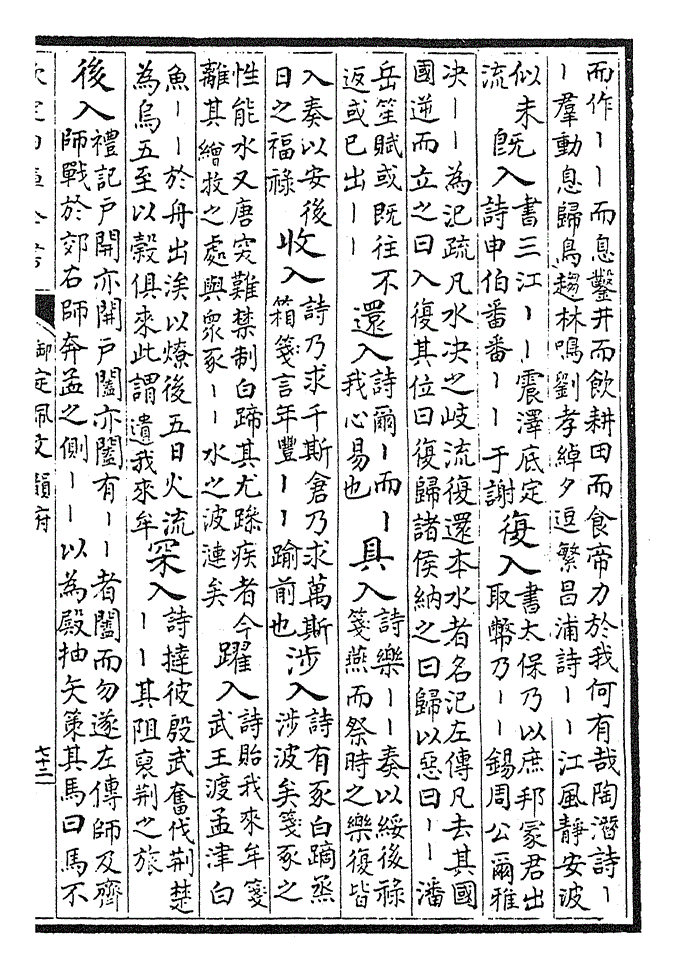 而作丨丨而息鑿井而飲耕田而食帝力於我何有哉陶潛詩丨
丨羣動息歸鳥趨林鳴劉孝綽夕逗繁昌浦詩丨丨江風靜安波
似未
流
既入
書三江丨丨震澤底定
詩申伯番番丨丨于謝
復入
書太保乃以庶邦冢君出
取幣乃丨丨錫周公爾雅
决丨丨為汜疏凡水决之岐流復還本水者名汜左傳凡去其國
國逆而立之曰入復其位曰復歸諸侯納之曰歸以惡曰丨丨潘
岳笙賦或既往不
返或已出丨丨
還入
詩爾丨而丨
我心易也
具入
詩樂丨丨奏以綏後祿
箋燕而祭時之樂復皆
入奏以安後
日之福祿
收入
詩乃求千斯倉乃求萬斯
箱箋言年豐丨丨踰前也
涉入
詩有豕白蹢烝
涉波矣箋豕之
性能水又唐突難禁制白蹄其尤躁疾者今
離其繒牧之處與眾豕丨丨水之波漣矣
躍入
詩貽我來牟箋
武王渡孟津白
魚丨丨於舟出涘以燎後五日火流
為烏五至以穀俱來此謂遺我來牟
深入
詩撻彼殷武奮伐荆楚
丨丨其阻裒荆之旅
後入
禮記戶開亦開戶闔亦闔有丨丨者闔而勿遂左傳師及齊
師戰於郊右師奔孟之側丨丨以為殿抽矢策其馬曰馬不
欽定四庫全書
御定佩文韻府
七十二